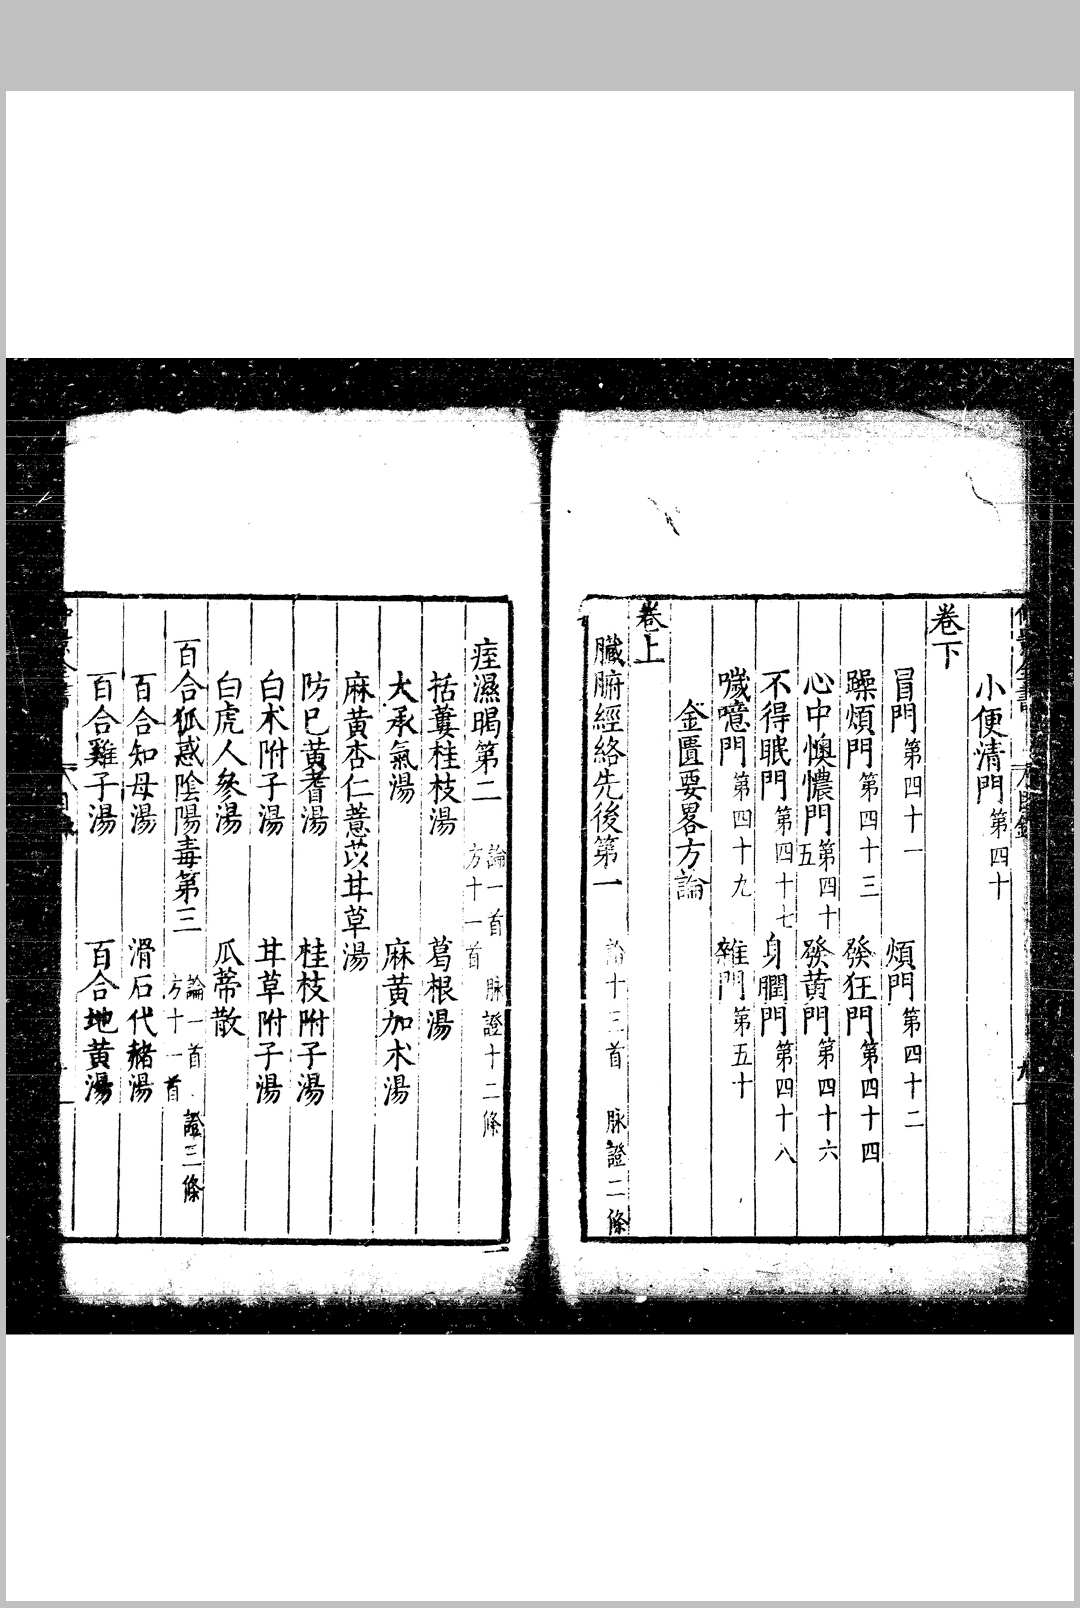 小便清門第四十
卷下
冒門第四十一 煩門第四十二
躁煩門第四十三 發狂門第四十四
心中懊憹門第四十五 發黃門第四十六
不得眠門第四十七 身䐃門第四十八
噦噫門第四十九 雜門第五十
金匱要畧方論
卷上
臟腑經絡先後第一 論十三首 脉證二條
痓濕暍第二 論一首 脉證十二條 方十一首
括蔞桂枝湯 葛根湯
大承氣湯 麻黃加朮湯
麻黃杏仁薏苡甘草湯
防己黃耆湯 桂枝附子湯
白朮附子湯 甘草附子湯
白虎人參湯 瓜蒂散
百合狐惑陰陽毒第三 論一首 證三條 方十一首
百合知母湯 滑石代赭湯
百合雞子湯 百合地黃湯